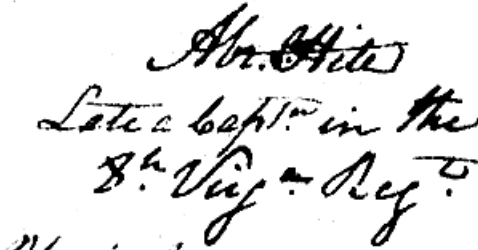 Abr. Hite
Late a Capt.n in the
8.th Virg.a Reg.t